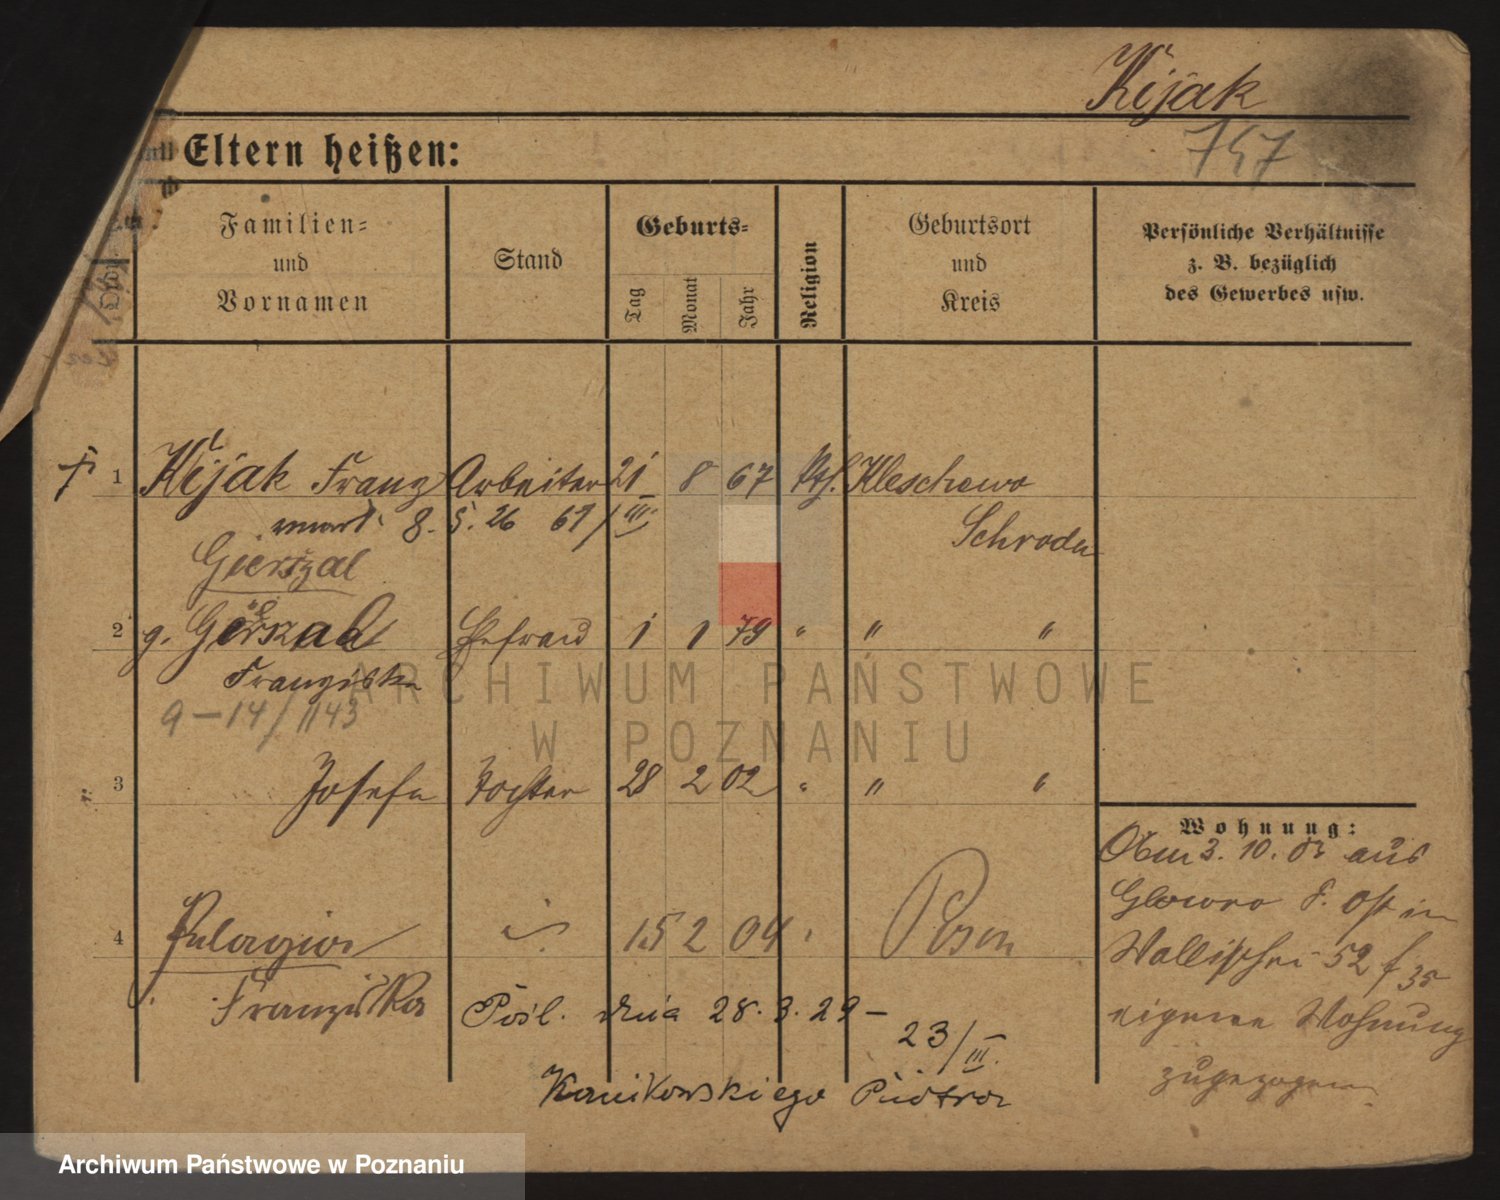 Kijak
757
Eltern heißen:
Familien-
und
Vornamen
Stand
Geburts-
Tag
Monat
Jahr
Religion
Geburtsort
und
Kreis
Persönliche Verhältnisse
z. B. bezüglich
des Gewerbes usw.
1 Kijak Franz Arbeiter 21 8 67 kth. Kleschewo
zmarł 8.5.26 69/III Schroda
Gierszal
2 g. Gierszal Ehefrau 1 1 79 " " "
Franziska
9-14/1143
3 Josefa Tochter 28 2 02 " " "
4 Pelagia 15 2 04 Posen
Franziska Pośl. dnia 28.3.29 -
23/III.
Kanikowskiego Piotra
Wohnung:
3.10.03 aus
Glowno
Wallischei 52
eigene Wohnung
zugezogen
ARCHIWUM PAŃSTWOWE
W POZNANIU
Archiwum Państwowe w Poznaniu